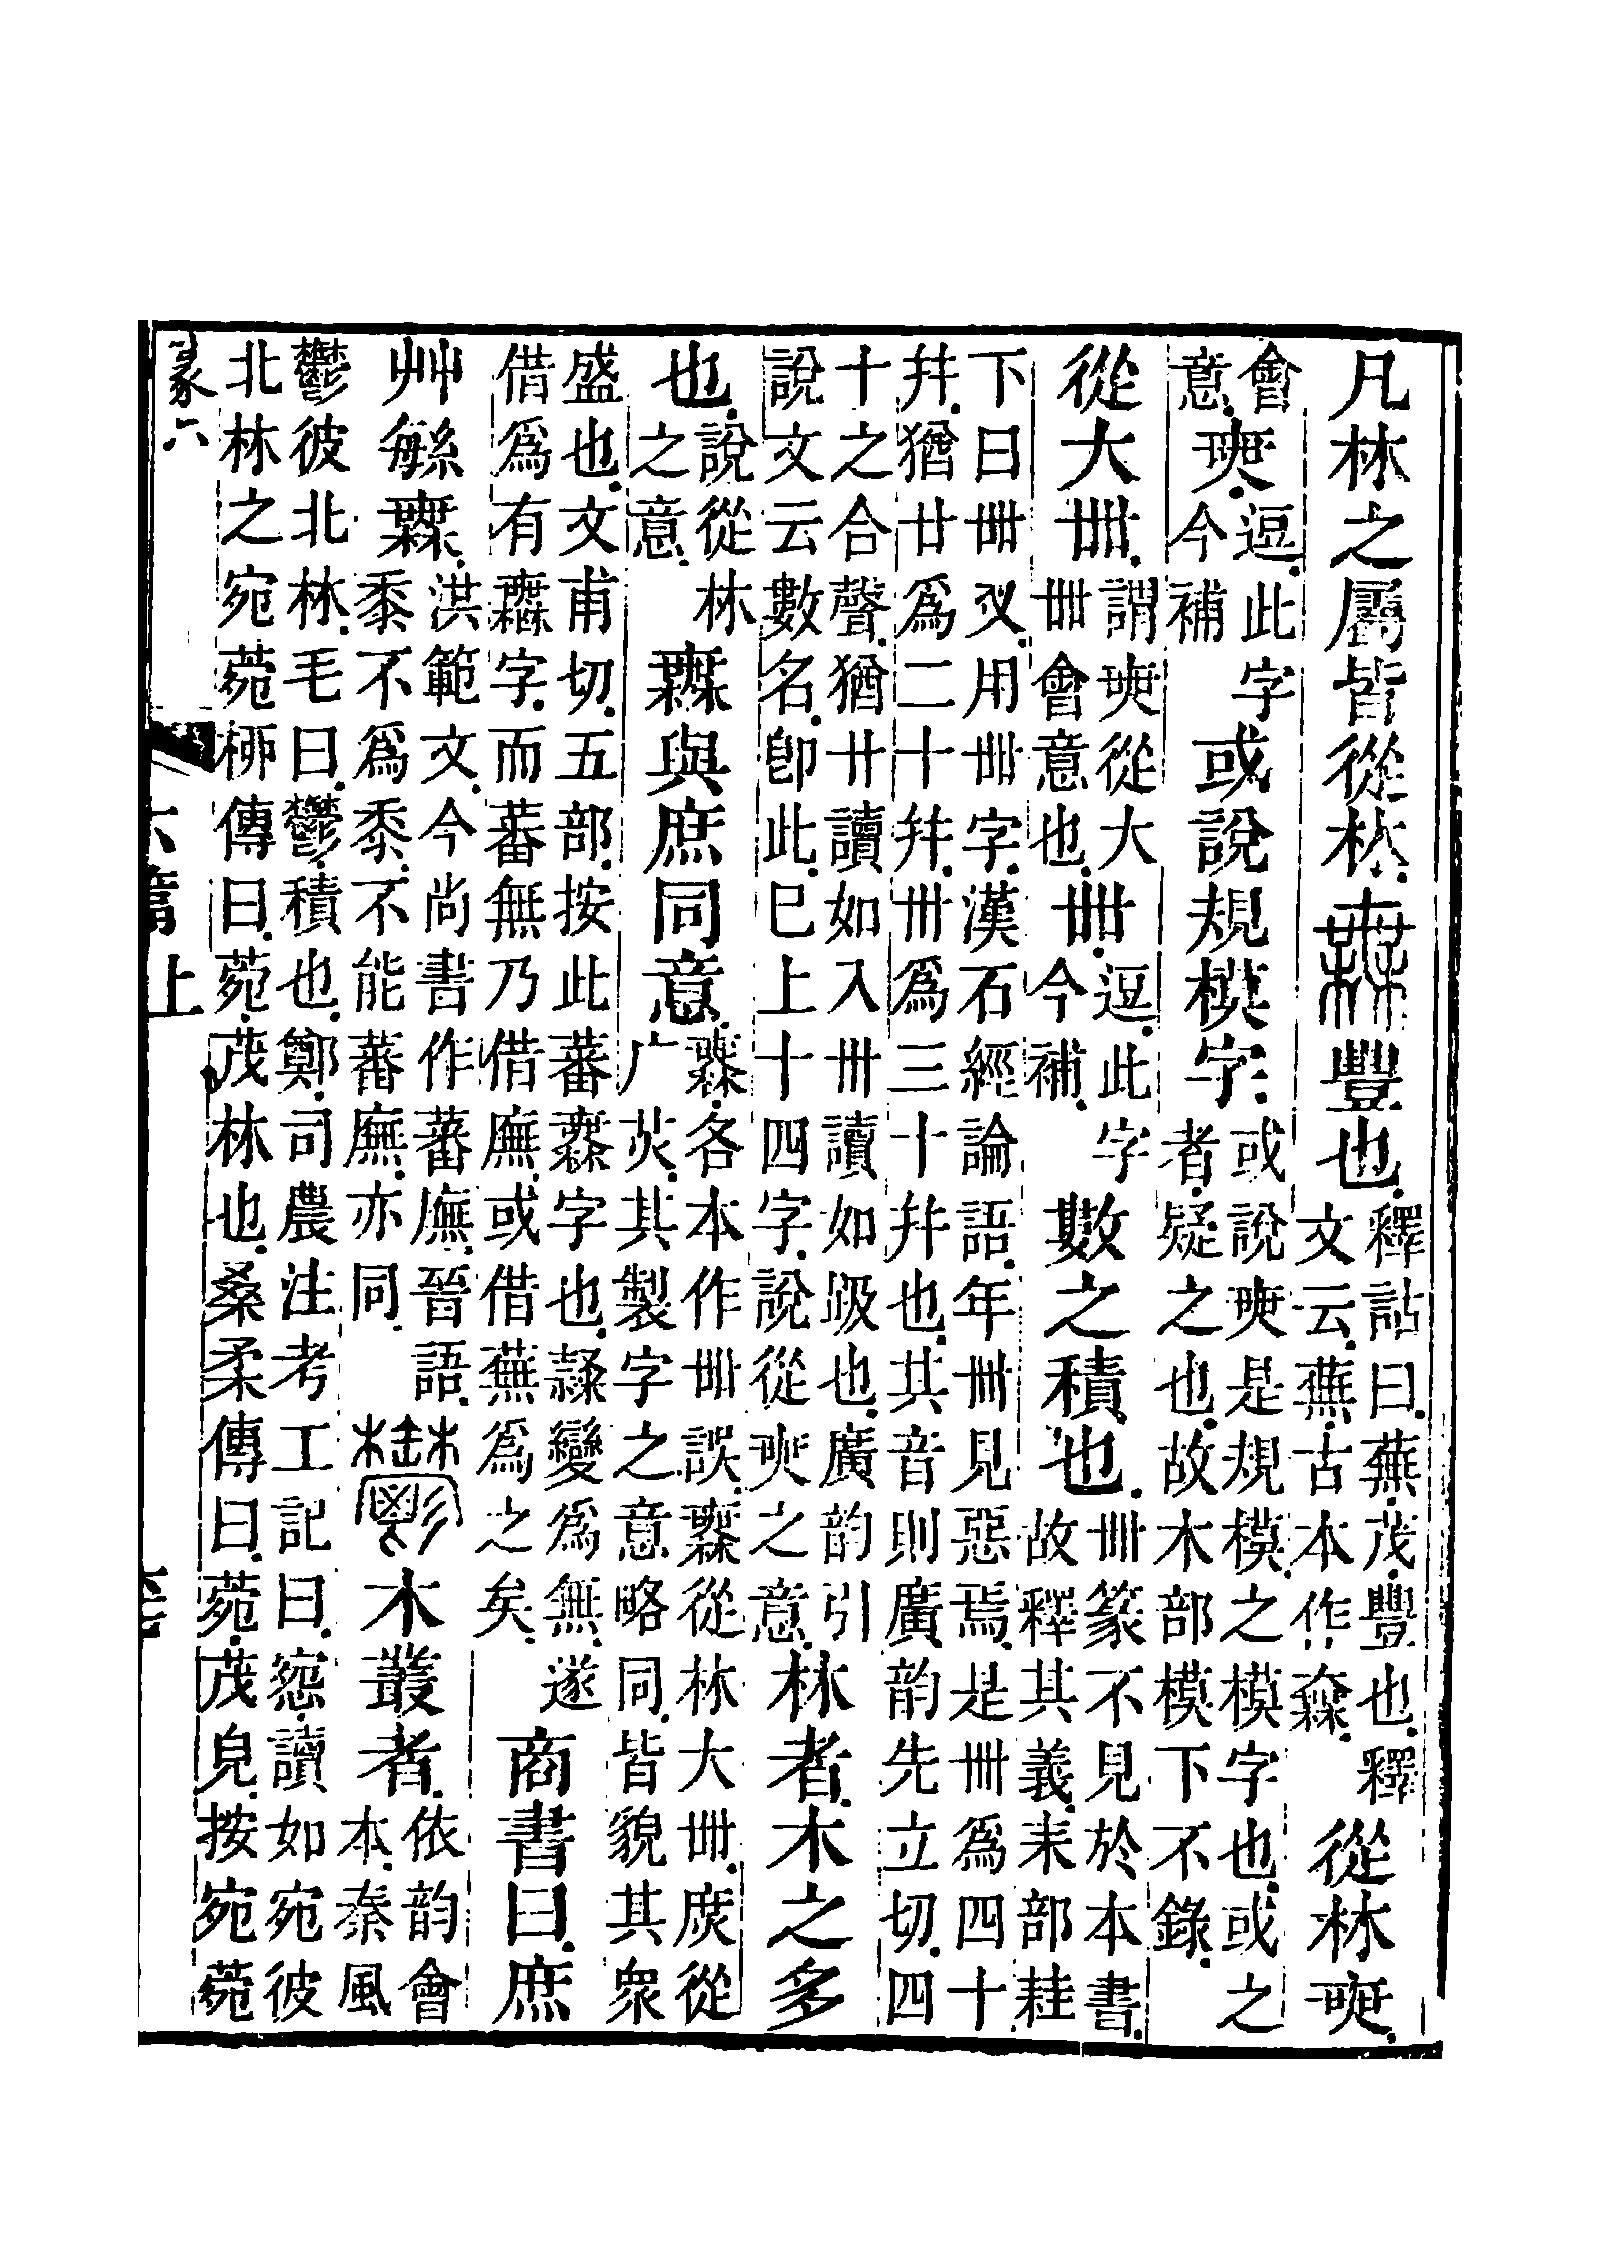 凡林之屬皆從林。𣞤豐也。釋詁曰。蕪。茂。豐也。釋
文云。蕪。古本作𣞣。從林𡘲。
會
意。𡘲。逗。此字
今補或說規模字。或說𡘲是規模之模字也。或之
者。疑之也。故木部模下不錄。
從大卌。謂𡘲從大
卌會意也。卌。逗。此字
今補。數之積也。卌篆不見於本書。
故釋其義。耒部𦓱
下曰卌叉。用卌字。漢石經論語。年卌見惡焉。是卌爲四十
幷。猶廿爲二十幷。卅爲三十幷也。其音則廣韵先立切。四
十之合聲。猶卄讀如入。卅讀如趿也。廣韵引
說文云數名。卽此。巳上十四字。說從𡘲之意。林者。木之多
也。說從林
之意。𣞤與庶同意。𣞤。各本作卌。誤。𣞤從林大卌。庶從
广炗。其製字之意略同。皆貌其衆
盛也。文甫切。五部。按此蕃𣞤字也。隸變爲無。遂
借爲有𣠮字。而蕃無乃借廡。或借蕪爲之矣。商書曰。庶
艸緐𣞤。洪範文。今尚書作蕃廡。晉語。
黍不爲黍。不能蕃廡。亦同。鬱木叢者。依韵會
本。秦風
鬱彼北林。毛曰。鬱。積也。鄭司農注考工記曰。惌。讀如宛彼
北林之宛。菀桺傳曰。菀。茂林也。桑柔傳曰。菀。茂皃。按宛菀
篆六
六篇上